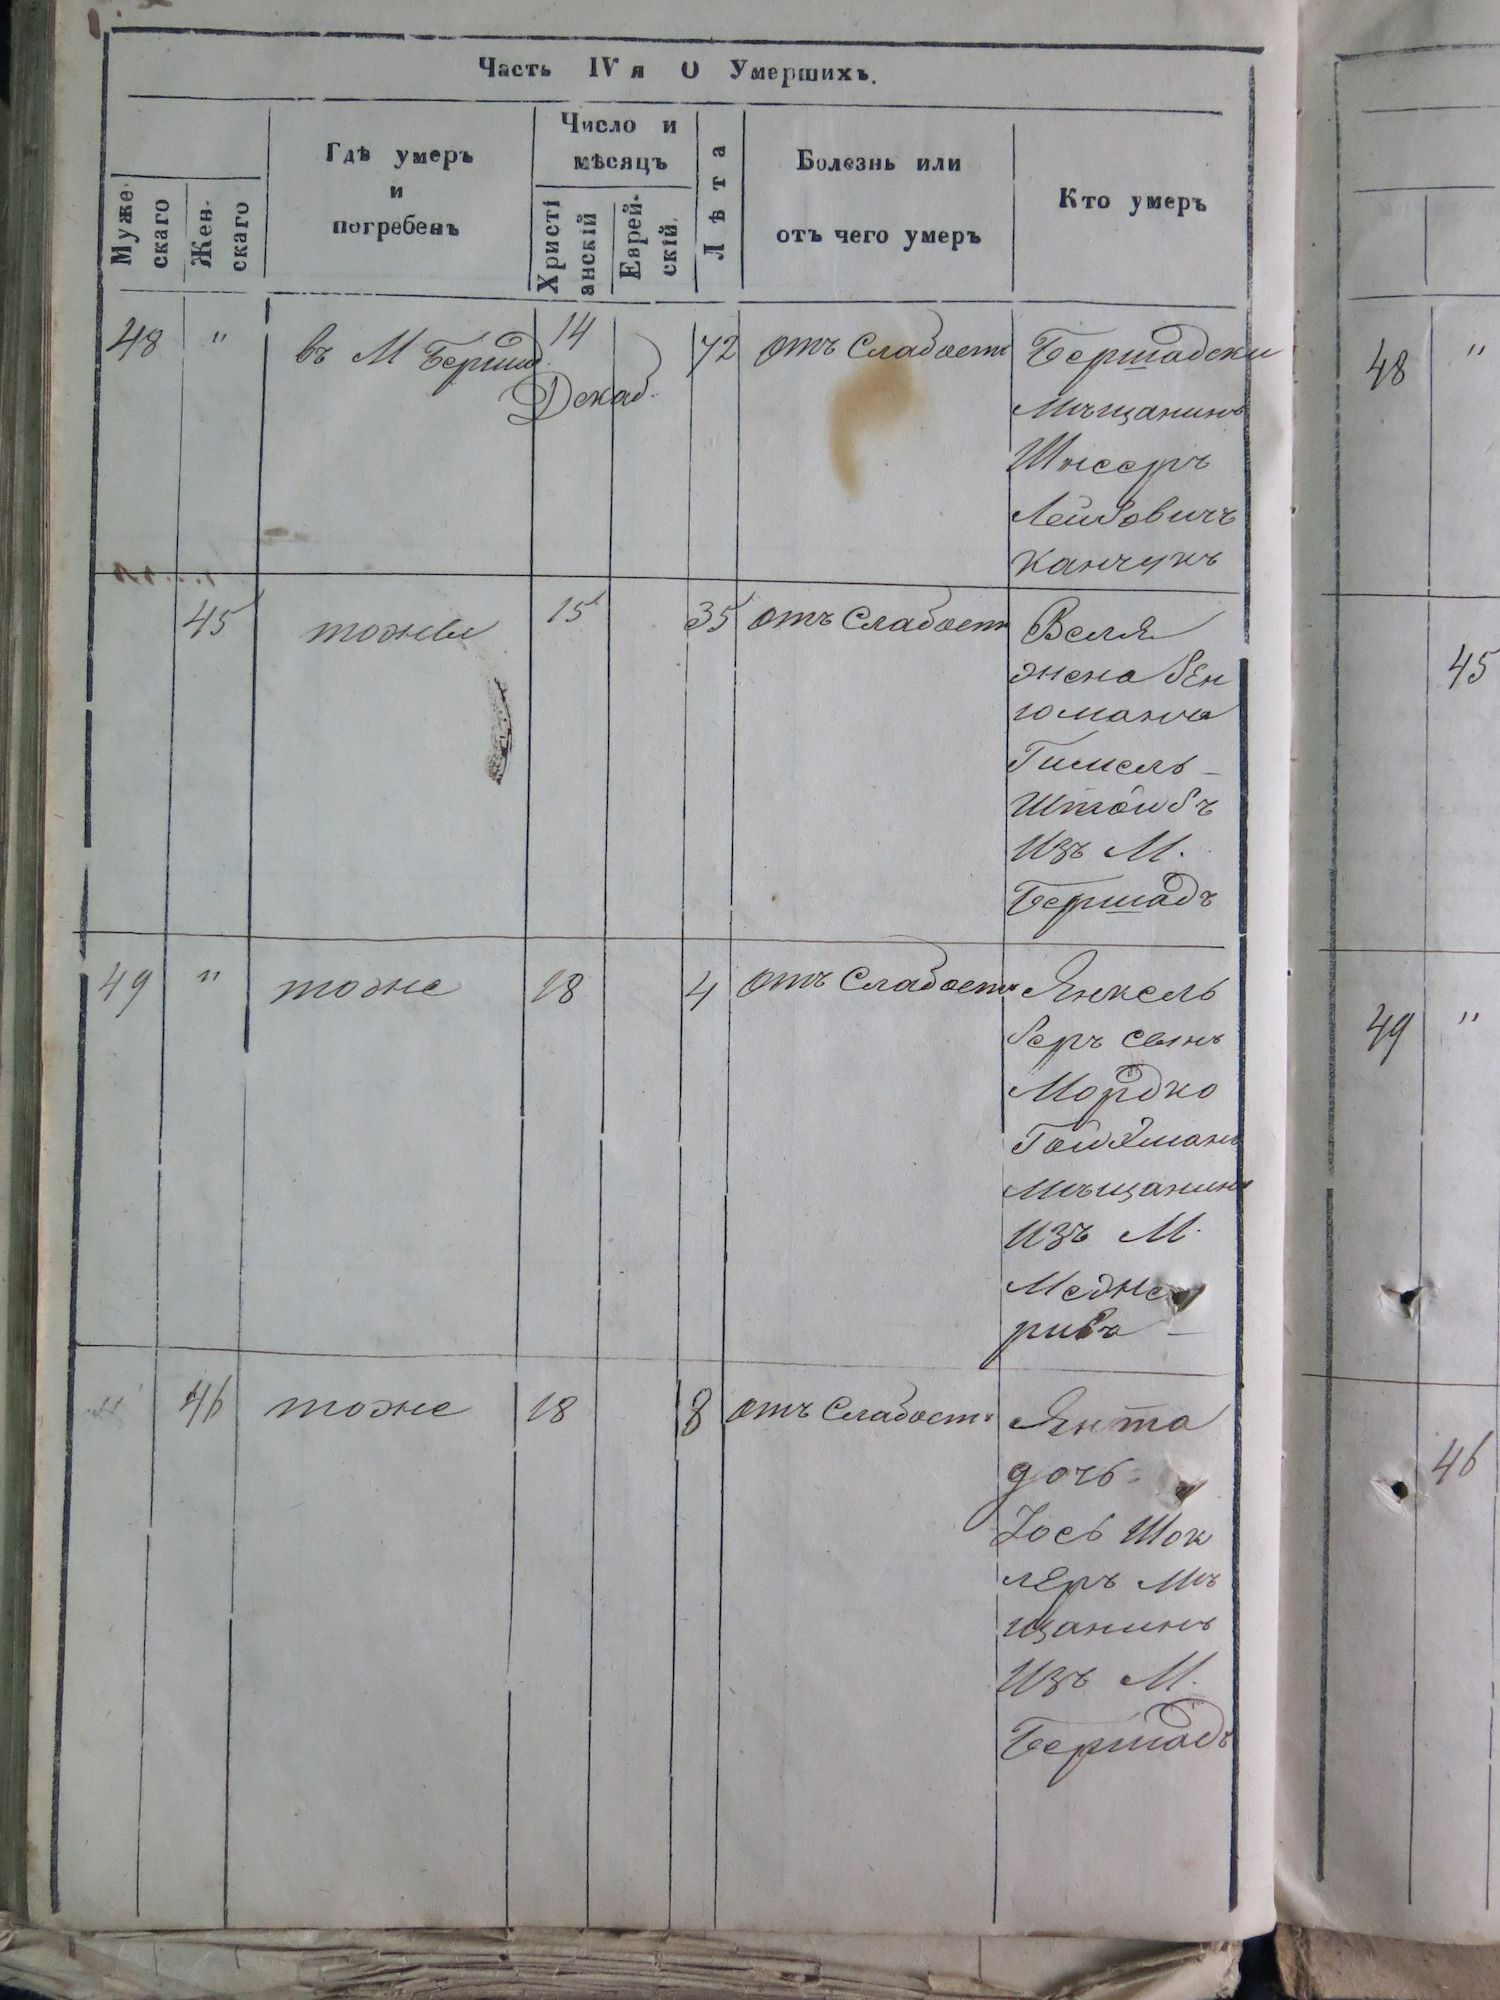 Часть IV я О Умершихъ.
Муже-
скаго
Жен-
скаго
Гдѣ умеръ
и
погребенъ
Число и
мѣсяцъ
Христі
анскій
Еврей-
скій.
Лѣта
Болезнь или
отъ чего умеръ
Кто умеръ
48 " въ М Бершад 14 72 отъ Слабости Бершадски
Декаб.
Мѣщанинъ
Лейбовичъ
Канчукъ
45 тоже 15 35 отъ Слабости Веля
жена
Гимель-
Штойбъ
Изъ М.
Бершадъ
49 " тоже 18 4 отъ Слабости Янкель
беръ сынъ
Мордко
Мѣщанинъ
Изъ М.
46 тоже 18 8 отъ Слабости Янта
дочь
Іось Шок
леръ Мѣ
щанинъ
Изъ М.
Бершадъ
48 "
45
49 "
46